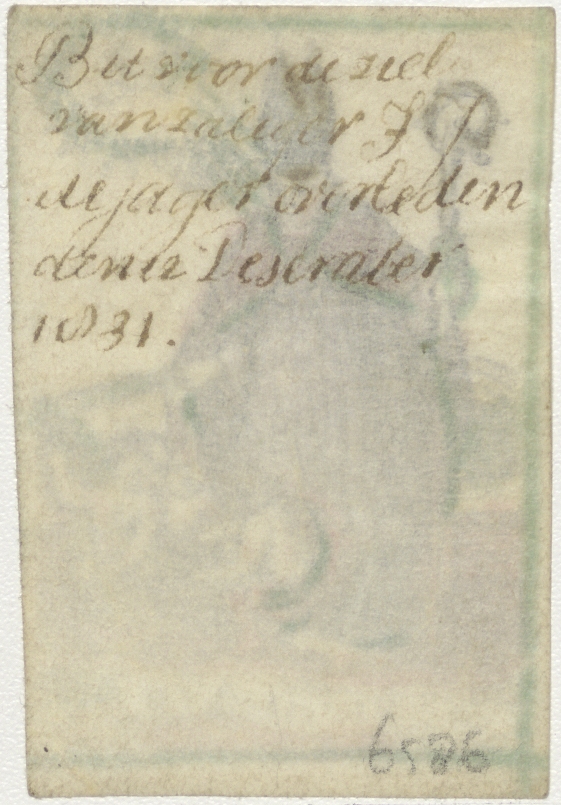 Bit voor de ziel
van zaliger J J
de jager overleden
den 12 Desember
1831.
6586